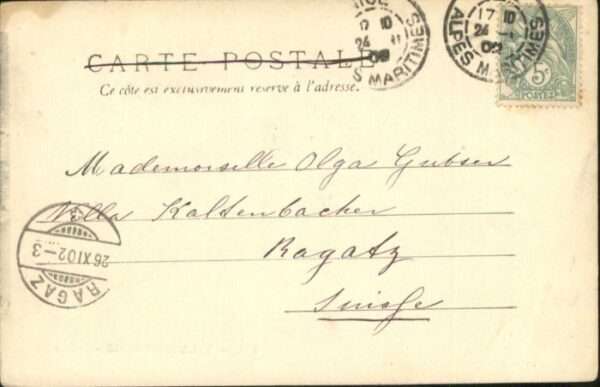 CARTE POSTALE
Ce côté est exclusivement réservé à l'adresse.
17 10
24 11
02
ALPES MARITIMES
17 10
24
02
ALPES MARITIMES
5c
POSTE
Mademoiselle Olga Gubser
Villa Kaltenbacher
Ragatz
Suisse
26 XI 02-3
RAGAZ